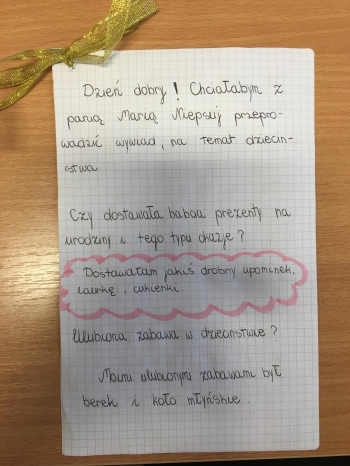 Dzień dobry! Chciałabym z
panią Marią Niepsuj przepro-
wadzić wywiad, na temat dzieciń-
stwa
Czy dostawała babcia prezenty na
urodziny i tego typu okazje?
Dostawałam jakiś drobny upominek,
laurkę, cukierki.
Ulubiona zabawa w dzieciństwie?
Moimi ulubionymi zabawami był
berek i koło młyńskie